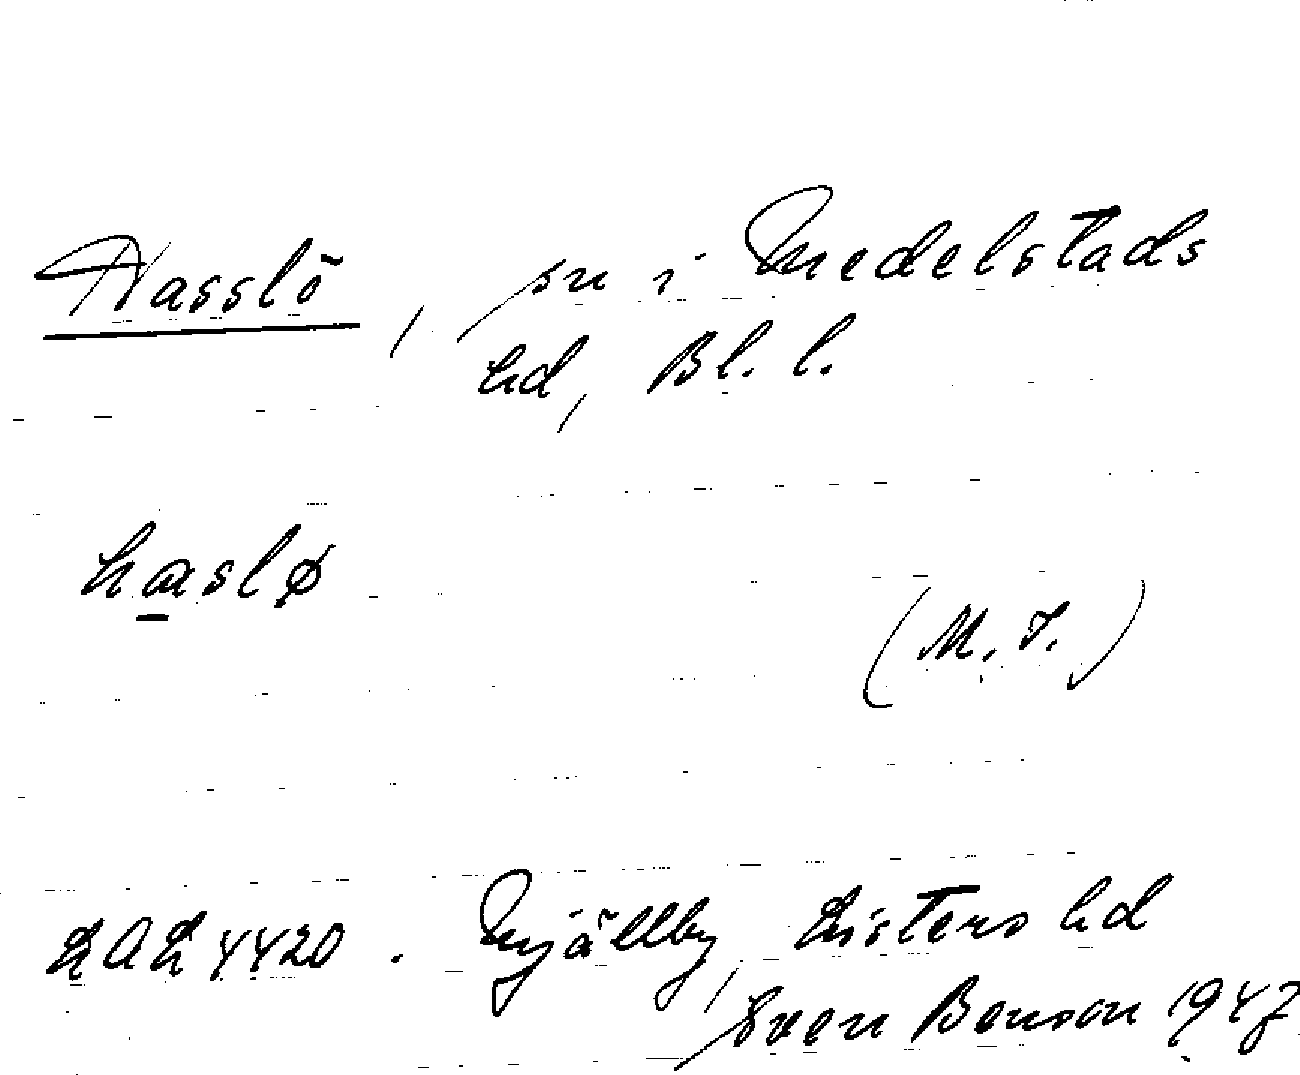 Hasslö, sn i Medelstads
hd, Bl. l.
haslø
(M. J.)
LAL 4420. Mjällby, Listers hd
Sven Benson 1947